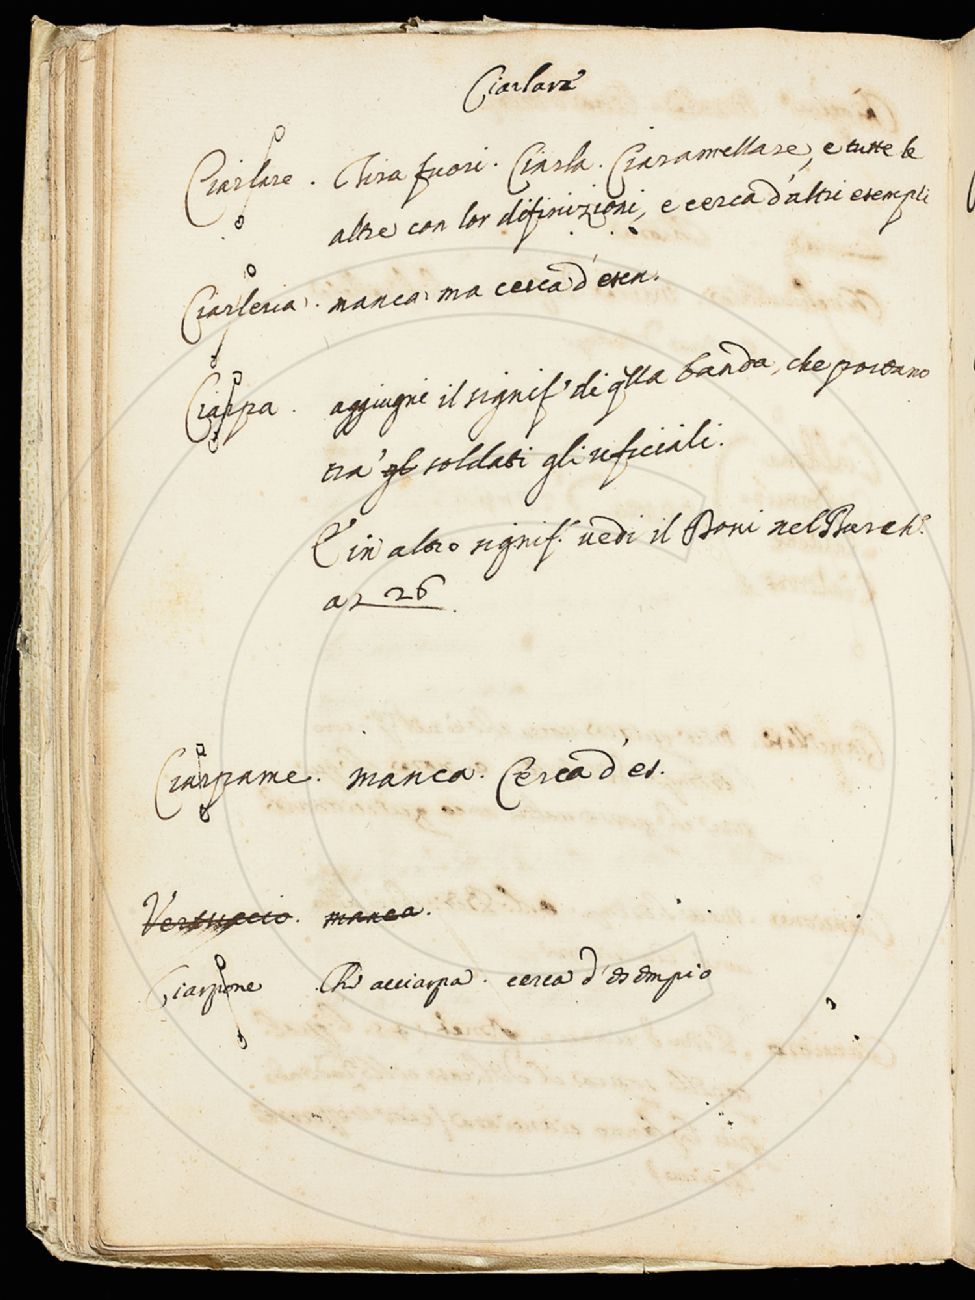 Ciarlare
Ciarlare. Tira fuori. Ciarla. Ciaramellare, e tutte le
altre con lor difinizioni, e cerca d'altri esempli
Ciarleria. manca: ma cerca d'esen.
Ciarpa. aggiugni il signif.º di qlla banda, che portano
tra' gl soldati gli uficiali.
E in altro signif. uedi il Boni nel Burch.
a 26
Ciarpame. manca. Cerca d'es.
Vertuccio. manca.
Ciarpone Chi acciarpa. cerca d'esempio